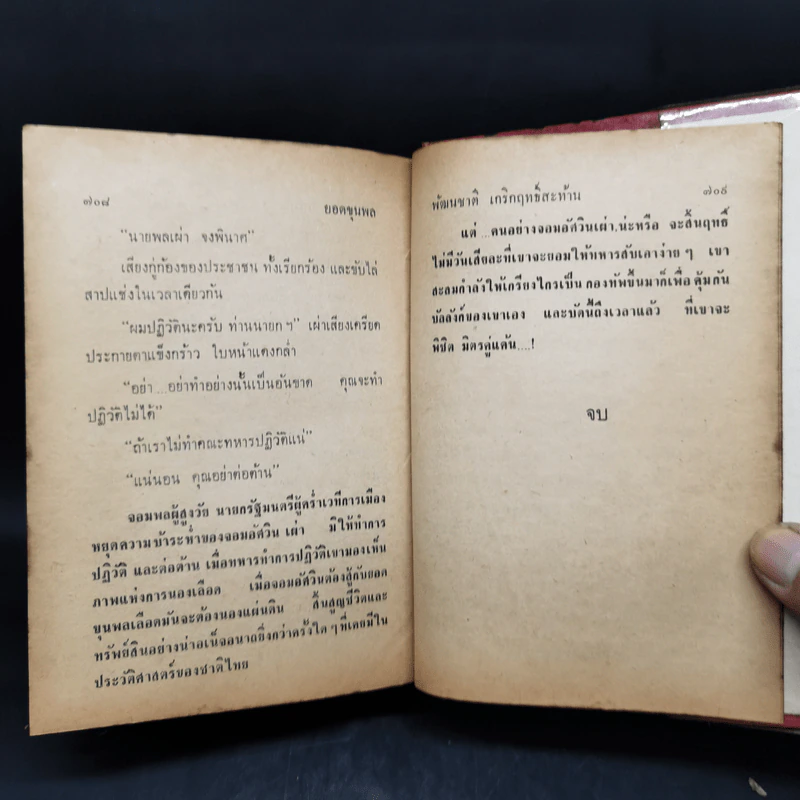 ๗๐๘ ยอดขุนพล
"นายพลเผ่า จงพินาศ"
เสียงกู่ก้องของประชาชน ทั้งเรียกร้อง และขับไล่
สาปแช่งในเวลาเดียวกัน
"ผมปฏิวัตินะครับ ท่านนายกฯ" เผ่าเสียงเครียด
ประกายตาแข็งกร้าว ใบหน้าแดงกล่ำ
"อย่า....อย่าทำอย่างนั้นเป็นอันขาด คุณจะทำ
ปฏิวัติไม่ได้"
"ถ้าเราไม่ทำคณะทหารปฏิวัติแน่"
"แน่นอน คุณอย่าต่อต้าน"
จอมพลผู้สูงวัย นายกรัฐมนตรีผู้คร่ำเวทีการเมือง
หยุดความบ้าระห่ำของจอมอัศวิน เผ่า มิให้ทำการ
ปฏิวัติ และต่อต้าน เมื่อทหารทำการปฏิวัติเขามองเห็น
ภาพแห่งการนองเลือด เมื่อจอมอัศวินต้องสู้กับยอด
ขุนพลเลือดมันจะต้องนองแผ่นดิน สิ้นสูญชีวิตและ
ทรัพย์สินอย่างน่าอเน็จอนาถยิ่งกว่าครั้งใด ๆ ที่เคยมีใน
ประวัติศาสตร์ของชาติไทย
พัฒนชาติ เกริกฤทธิ์สะท้าน ๗๐๙
แต่ ....คนอย่างจอมอัศวินเผ่า.น่ะหรือ จะสิ้นฤทธิ์
ไม่มีวันเสียละที่เขาจะยอมให้ทหารสับเอาง่าย ๆ เขา
สะสมกำลังให้เกรียงไกรเป็น กองทัพขึ้นมาก็เพื่อ คุ้มกัน
บัลลังก์ของเขาเอง และบัดนี้ถึงเวลาแล้ว ที่เขาจะ
พิชิต มิตรคู่แค้น....!
จบ